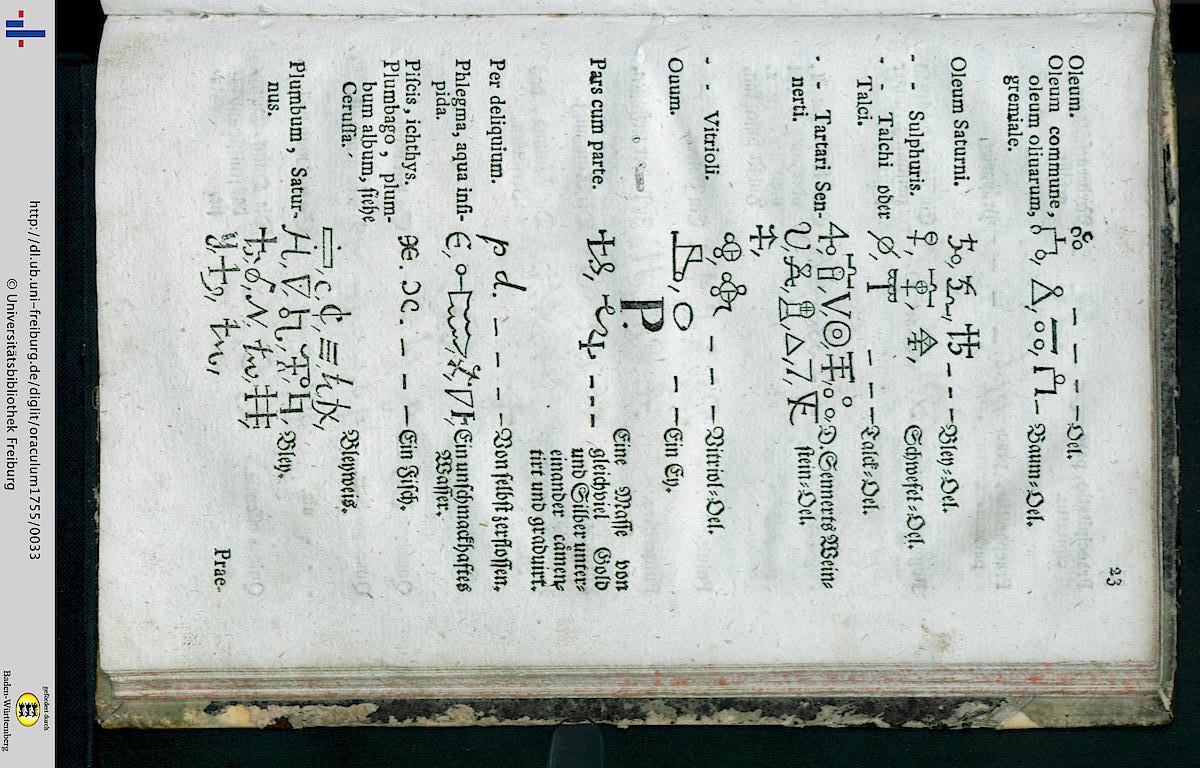 23
Oleum. — — — — Oel.
Oleum commune, — Baum=Oel.
oleum oliuarum,
gremiale.
Oleum Saturni. — — — Bley=Oel.
- - Sulphuris. Schwefel=Oel.
- - Talchi oder — — — Talck=Oel.
Talci.
- - Tartari Sen- D. Sennerts Wein=
nerti. stein=Oel.
- - Vitrioli. — — — Vitriol=Oel.
Ouum. — — Ein Ey.
P.
Pars cum parte. - - - Eine Masse von
gleichviel Gold
und Silber unter=
einander cämen=
tirt und graduirt.
Per deliquium. p d. — — — — Von selbst zerflossen.
Phlegma, aqua insi- Ein unschmackhaftes
pida. Wasser.
Piscis, ichthys. — — — Ein Fisch.
Plumbago, plum- Bleyweis.
bum album, siehe
Cerussa.
Plumbum, Satur- Bley.
nus.
Prae-
http://dl.ub.uni-freiburg.de/diglit/oraculum1755/0033
© Universitätsbibliothek Freiburg
gefördert durch
Baden-Württemberg